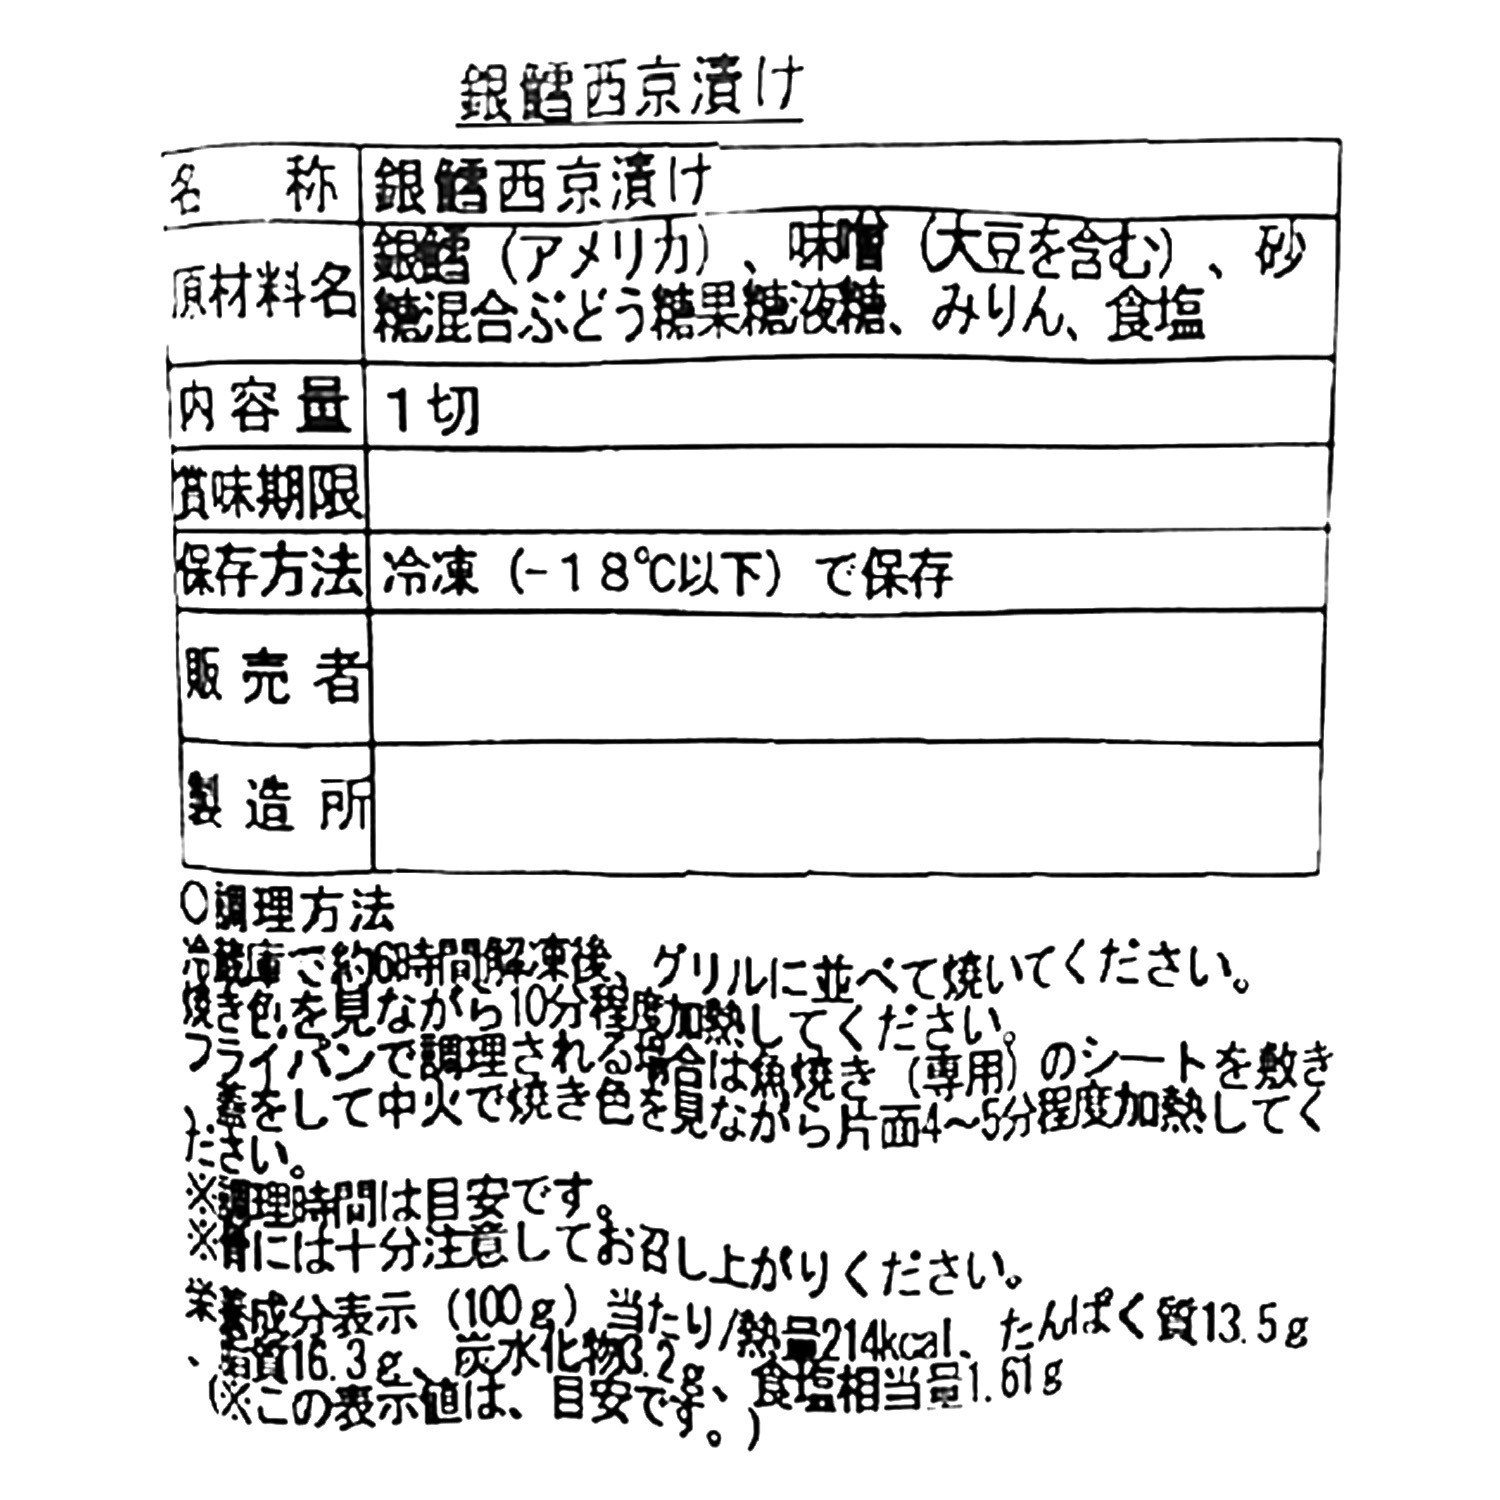 銀鱈西京漬け
名称 銀鱈西京漬け
原材料名 銀鱈（アメリカ）、味噌（大豆を含む）、砂
糖混合ぶどう糖果糖液糖、みりん、食塩
内容量 １切
賞味期限
保存方法 冷凍（-１８℃以下）で保存
販売者
製造所
○調理方法
冷蔵庫で約6時間解凍後、グリルに並べて焼いてください。
焼き色を見ながら10分程度加熱してください。
フライパンで調理される場合は魚焼き（専用）のシートを敷き
、蓋をして中火で焼き色を見ながら片面4～5分程度加熱してく
ださい。
※調理時間は目安です。
※骨には十分注意してお召し上がりください。
栄養成分表示（100ｇ）当たり/熱量214kcal、たんぱく質13.5ｇ
、脂質16.3ｇ、炭水化物3.2ｇ、食塩相当量1.61ｇ
（※この表示値は、目安です。）